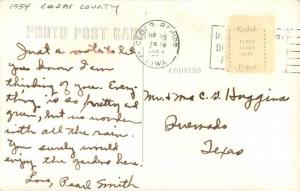 1954 CEDAR COUNTY
PHOTO POST CARD
Just a note to let
you know I am
thinking of you. Every-
thing is so pretty and
green, but no wonder
with all the rain.
You surely would
enjoy the gardens here.
Love, Pearl Smith
CEDAR RAPIDS
IOWA
Kodak
PLACE
STAMP
HERE
Paper
ADDRESS
Mr. & Mrs C. G. Huggins
Quemado
Texas